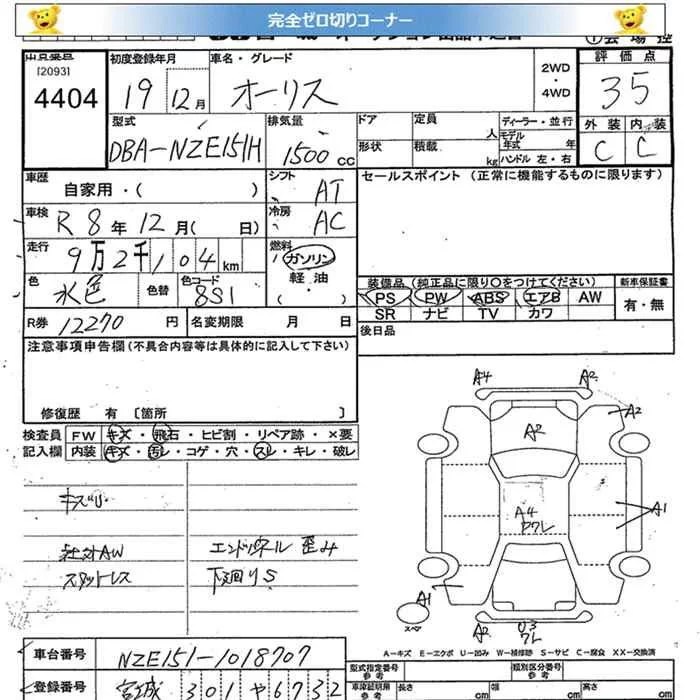 完全ゼロ切りコーナー
出品番号
[2093]
4404
初度登録年月
19 12月
車名・グレード
オーリス
2WD
・
4WD
評価点
35
外装 内装
C C
型式
DBA-NZE151H
排気量
1500cc
ドア
定員 人
形状
積載 kg
ディーラー・並行
モデル年式 年
ハンドル 左・右
車歴
自家用・( )
シフト
AT
セールスポイント (正常に機能するものに限ります)
車検
R8年12月( 日)
冷房
AC
走行
9万2千104km
燃料
ガソリン
軽・油
・( )
色
水色
色替
色コード
8S1
装備品 (純正品に限り○をつけてください)
PS PW ABS エアB AW
SR ナビ TV カワ
新車保証書
有・無
R券 12270円
名変期限 月 日
後日品
注意事項申告欄(不具合内容等は具体的に記入して下さい)
修復歴 有 〔箇所 〕
検査員
記入欄
FW キズ・飛石・ヒビ割・リペア跡・×要
内装 キズ・汚レ・コゲ・穴・スレ・キレ・破レ
キズリ
社外AW
スタットレス
エンドパネル 歪み
下廻りS
A4
A2
A2
A2
A4
ワレ
A1
A1
スペア
A2
U3
ワレ
A-キズ E-エクボ U-凹み W-補修跡 S-サビ C-腐食 XX-交換済
車台番号
NZE151-1018707
登録番号
宮城 301 や 6732
型式指定番号
参考
類別区分番号
参考
車庫証明用
参考
長さ cm
幅 cm
高さ cm